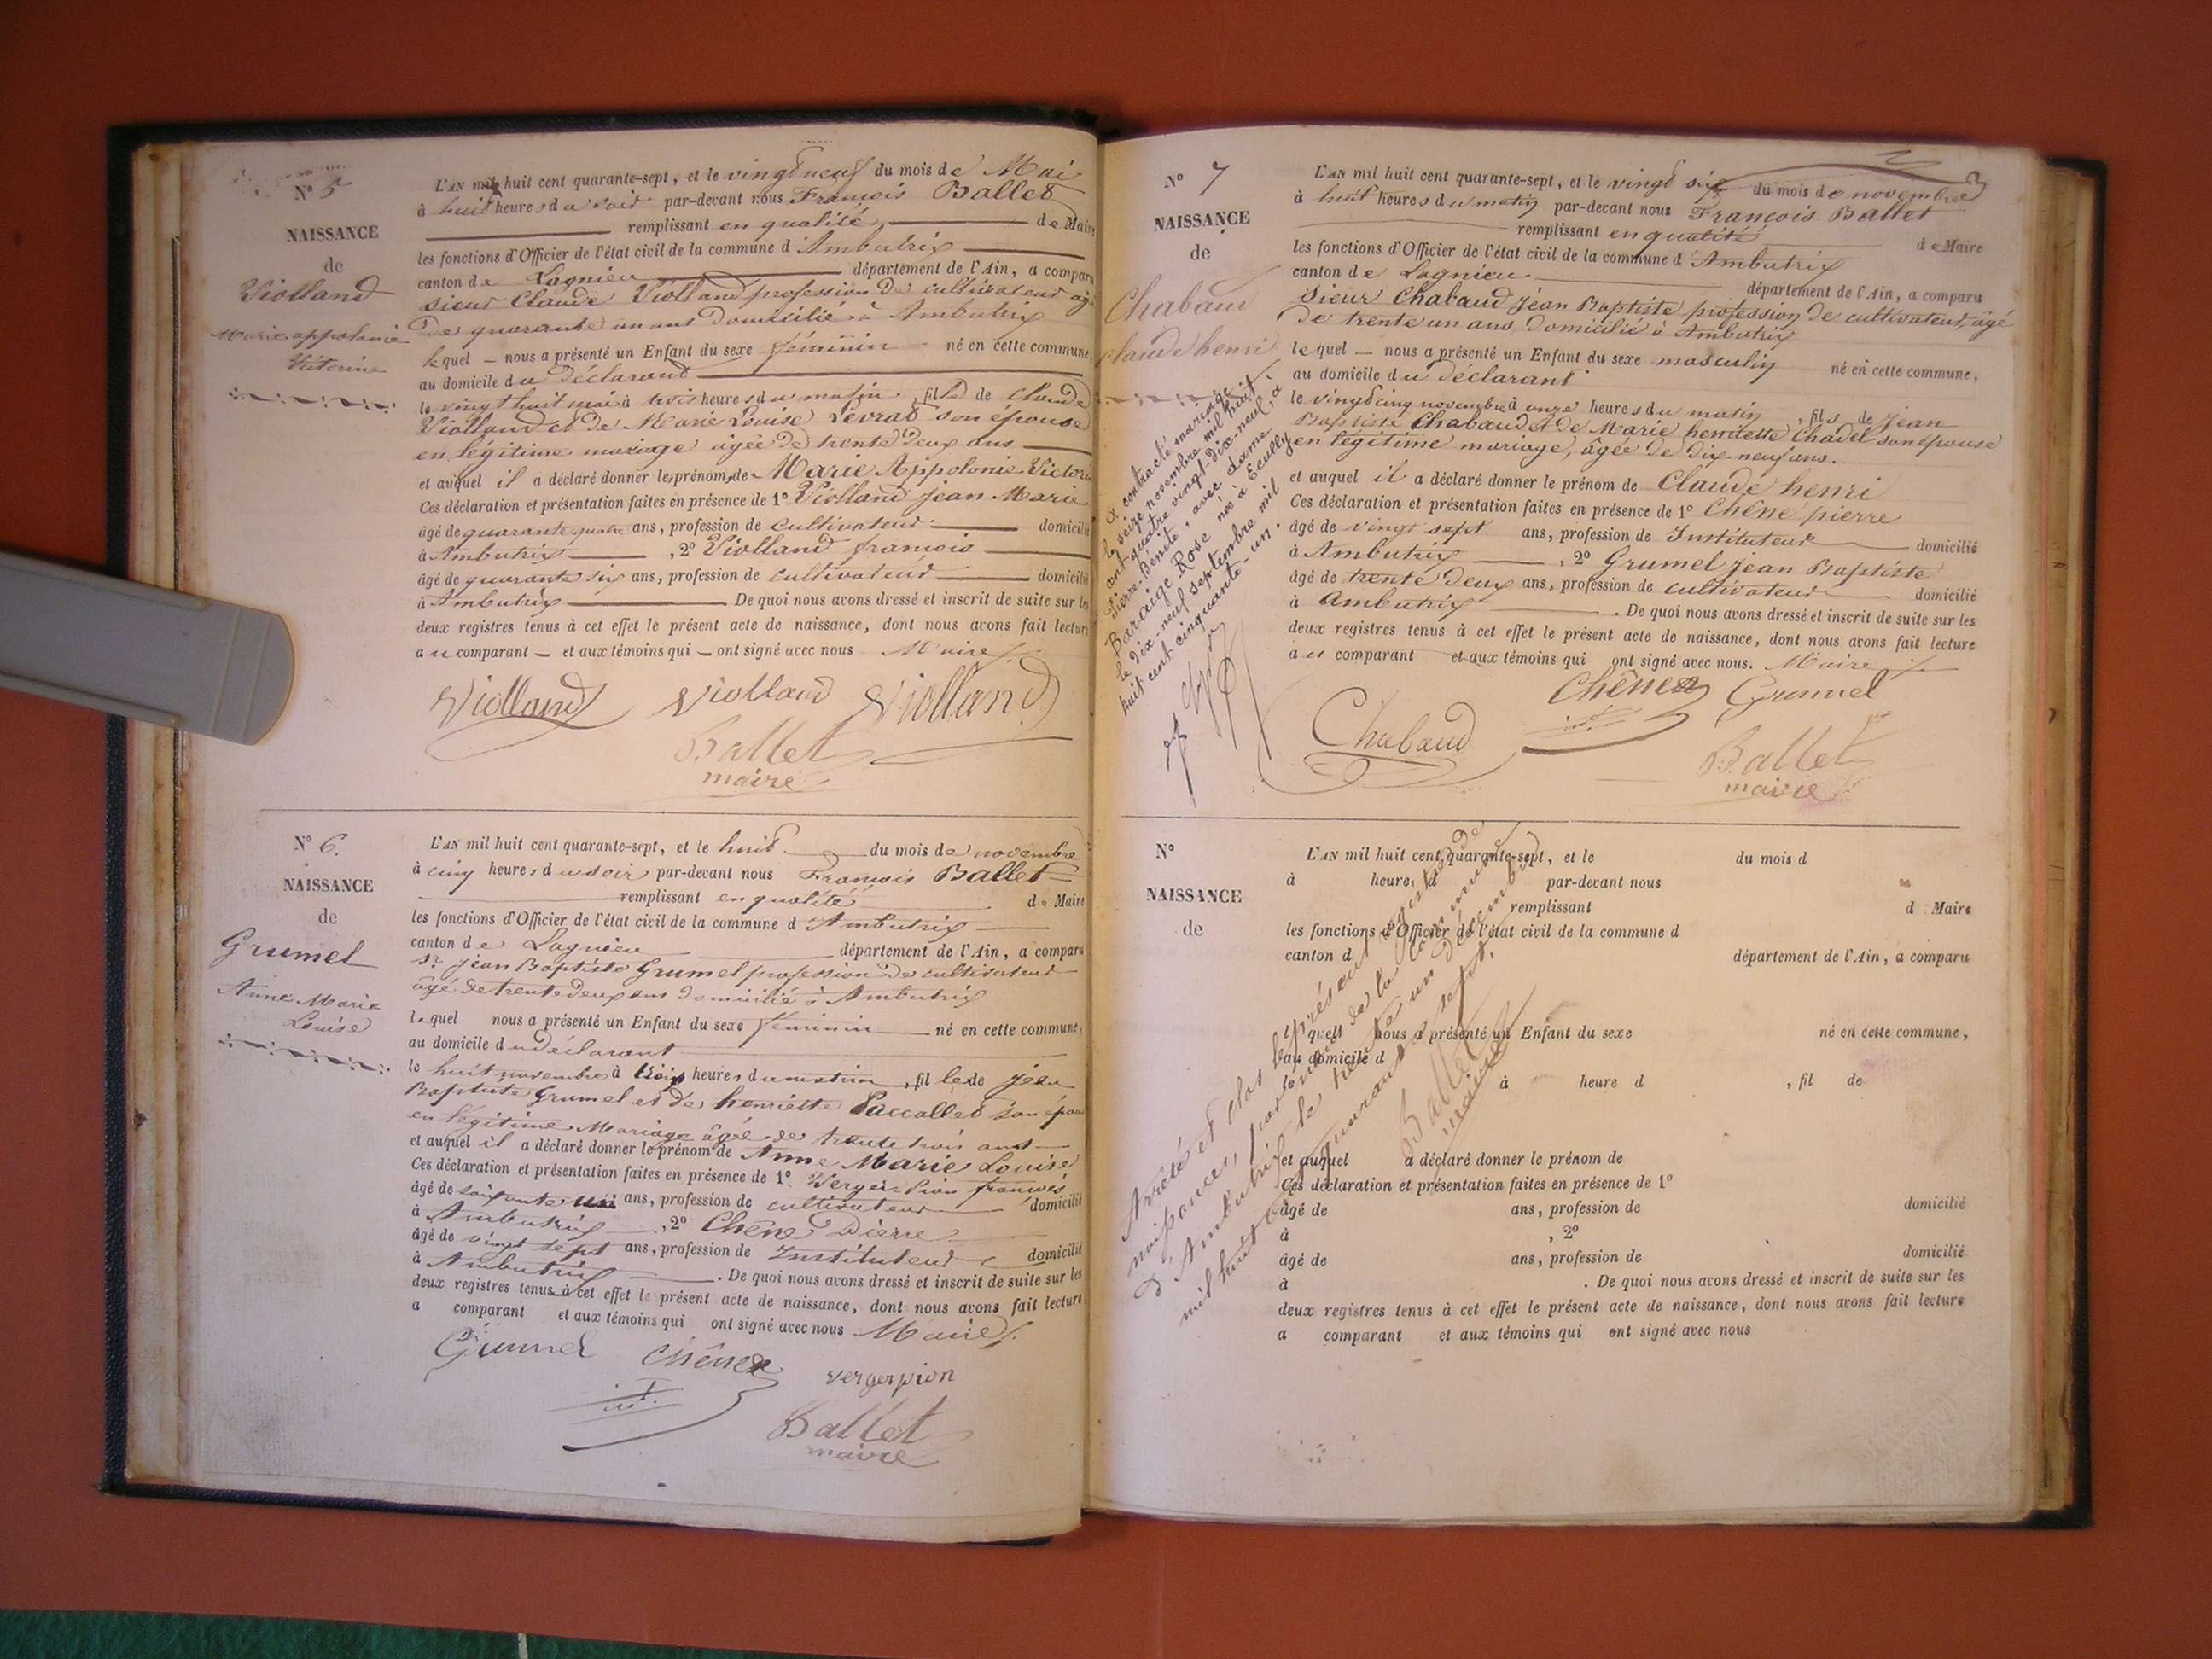 N° 5
NAISSANCE
de
Violland
Marie appolonie
Victorine
L'AN mil huit cent quarante-sept, et le vingt neuf du mois de Mai
à huit heures du soir par-devant nous François Ballet
remplissant en qualité de Maire
les fonctions d'Officier de l'état civil de la commune d'Ambutrix
canton de Lagnieu département de l'Ain, a comparu
sieur Claude Violland profession de cultivateur âgé
de quarante un ans domicilié à Ambutrix
lequel nous a présenté un Enfant du sexe féminin né en cette commune,
au domicile du déclarant
le vingt huit mai à trois heures du matin, fille de Claude
Violland et de Marie Louise Levrat son épouse
en légitime mariage âgée de trente deux ans
et auquel il a déclaré donner le prénom de Marie Appolonie Victorine
Ces déclaration et présentation faites en présence de 1° Violland jean Marie
âgé de quarante quatre ans, profession de cultivateur domicilié
à Ambutrix, 2° Violland francois
âgé de quarante six ans, profession de cultivateur domicilié
à Ambutrix De quoi nous avons dressé et inscrit de suite sur les
deux registres tenus à cet effet le présent acte de naissance, dont nous avons fait lecture
au comparant et aux témoins qui ont signé avec nous Maire
Violland Violland Violland
Ballet
maire
N° 6.
NAISSANCE
de
Grumel
Anne Marie
Louise
L'AN mil huit cent quarante-sept, et le huit du mois de novembre
à cinq heures du soir par-devant nous François Ballet
remplissant en qualité de Maire
les fonctions d'Officier de l'état civil de la commune d'Ambutrix
canton de Lagnieu département de l'Ain, a comparu
Sr. jean Baptiste Grumel profession de cultivateur
âgé de trente deux ans domicilié à Ambutrix
lequel nous a présenté un Enfant du sexe féminin né en cette commune,
au domicile du déclarant
le huit novembre à trois heures du matin, fille de jean
Baptiste Grumel et de henriette Paccallet son épouse
en légitime Mariage âgée de trente trois ans
et auquel il a déclaré donner le prénom de Anne Marie Louise
Ces déclaration et présentation faites en présence de 1°. Verger-Pion françois
âgé de soixante un ans, profession de cultivateur domicilié
à Ambutrix, 2° Chêne Pierre
âgé de vingt sept ans, profession de Instituteur domicilié
à Ambutrix. De quoi nous avons dressé et inscrit de suite sur les
deux registres tenus à cet effet le présent acte de naissance, dont nous avons fait lecture
a comparant et aux témoins qui ont signé avec nous Maire
Grumel Chêne vergerpion
Ballet
maire
N° 7
NAISSANCE
de
Chabaud
Claude henri
a contracté mariage
le seize novembre mil huit
cent quatre vingt-dix-neuf, à
Pierre-Bénite, avec dame
Baraige Rose née à Ecully
le dix-neuf septembre mil
huit cent cinquante-un.
L'AN mil huit cent quarante-sept, et le vingt six du mois de novembre
à huit heures du matin par-devant nous François Ballet
remplissant en qualité de Maire
les fonctions d'Officier de l'état civil de la commune d'Ambutrix
canton de Lagnieu département de l'Ain, a comparu
Sieur Chabaud Jean Baptiste profession de cultivateur, âgé
de trente un ans, domicilié à Ambutrix
lequel nous a présenté un Enfant du sexe masculin né en cette commune,
au domicile du déclarant
le vingt cinq novembre à onze heures du matin, fils de Jean
Baptiste Chabaud et de Marie henriette Chadel son épouse
en légitime mariage, âgée de dix neuf ans.
et auquel il a déclaré donner le prénom de Claude henri
Ces déclaration et présentation faites en présence de 1° Chêne pierre
âgé de vingt sept ans, profession de Instituteur domicilié
à Ambutrix, 2° Grumel Jean Baptiste
âgé de trente deux ans, profession de cultivateur domicilié
à Ambutrix. De quoi nous avons dressé et inscrit de suite sur les
deux registres tenus à cet effet le présent acte de naissance, dont nous avons fait lecture
au comparant et aux témoins qui ont signé avec nous. Maire
Chêne Grumel
Chabaud
Ballet
maire
N°
NAISSANCE
de
L'AN mil huit cent quarante-sept, et le du mois d
à heure d par-devant nous
remplissant d Maire
les fonctions d'Officier de l'état civil de la commune d
canton d département de l'Ain, a comparu
lquel nous a présenté un Enfant du sexe né en cette commune,
au domicile d
à heure d, fil de
et auquel a déclaré donner le prénom de
Ces déclaration et présentation faites en présence de 1°
âgé de ans, profession de domicilié
à, 2°
âgé de ans, profession de domicilié
à. De quoi nous avons dressé et inscrit de suite sur les
deux registres tenus à cet effet le présent acte de naissance, dont nous avons fait lecture
a comparant et aux témoins qui ont signé avec nous
Arrêté et clos le présent registre de
naissances, par nous de la commune
d'Ambutrix le trente un décembre
mil huit cent quarante sept.
Ballet
maire